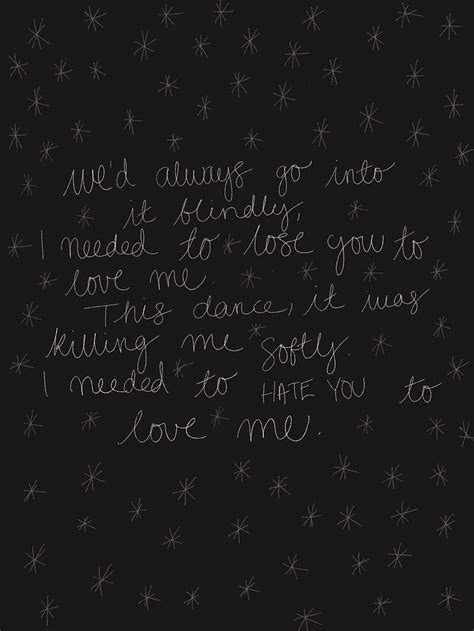 We'd always go into
it blindly,
I needed to lose you to
love me.
This dance, it was
killing me softly.
I needed to HATE YOU to
love me.